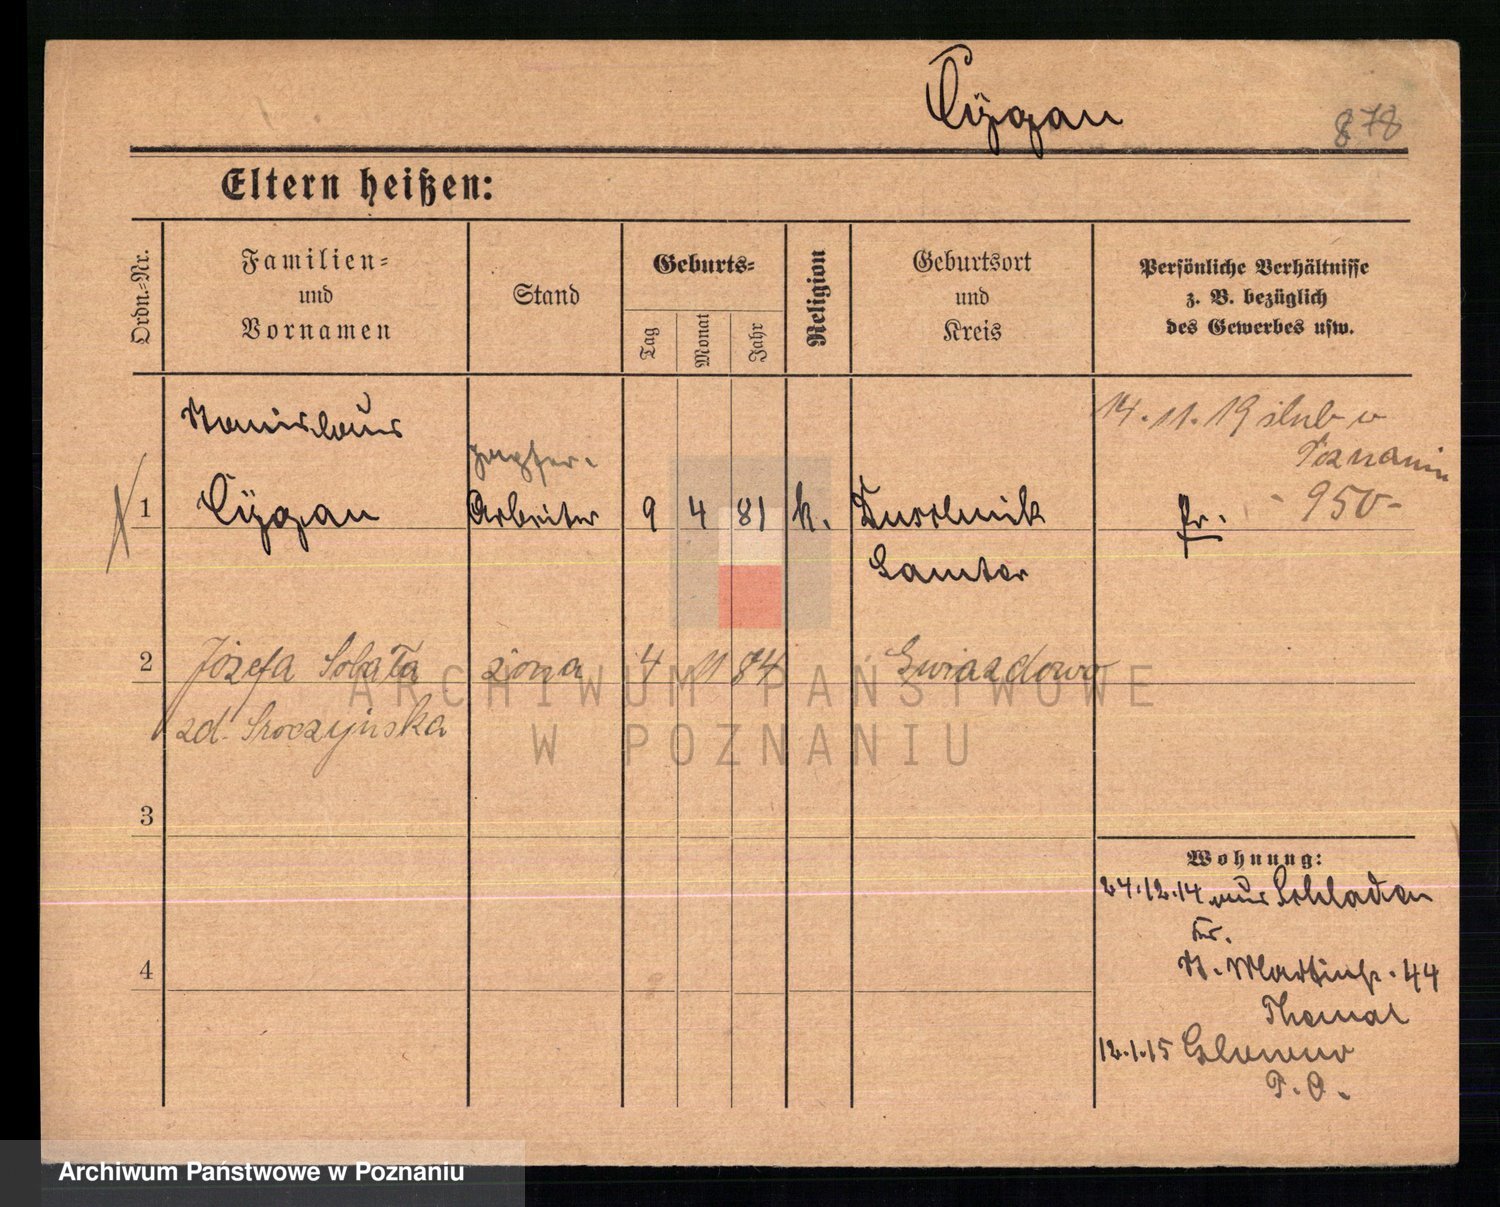 Cygan
878
Eltern heißen:
Ordn.=Nr.
Familien=
und
Vornamen
Stand
Geburts=
Tag
Monat
Jahr
Religion
Geburtsort
und
Kreis
Persönliche Verhältnisse
z. B. bezüglich
des Gewerbes usw.
Stanislaus
14. 11. 19 ślub w
Poznaniu
- 950 -
1 Cygan Arbeiter 9 4 81 k. Duschnik fr.
Samter
2 Józefa Sobata żona 4 11 84 Gwiazdowo
zd. Sroczyńska
3
4
Wohnung:
24.12.14 aus Schladen
St. Martinstr. 44
Thomas
12.1.15 Glowno
P. O.
ARCHIWUM PAŃSTWOWE
W POZNANIU
Archiwum Państwowe w Poznaniu